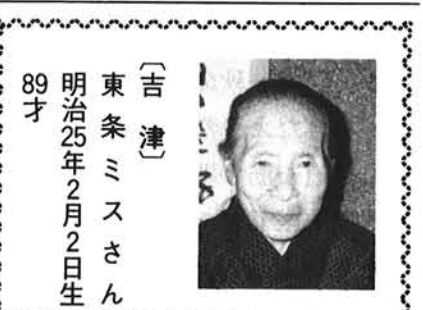 〔吉津〕
東条ミスさん
明治25年2月2日生
89才